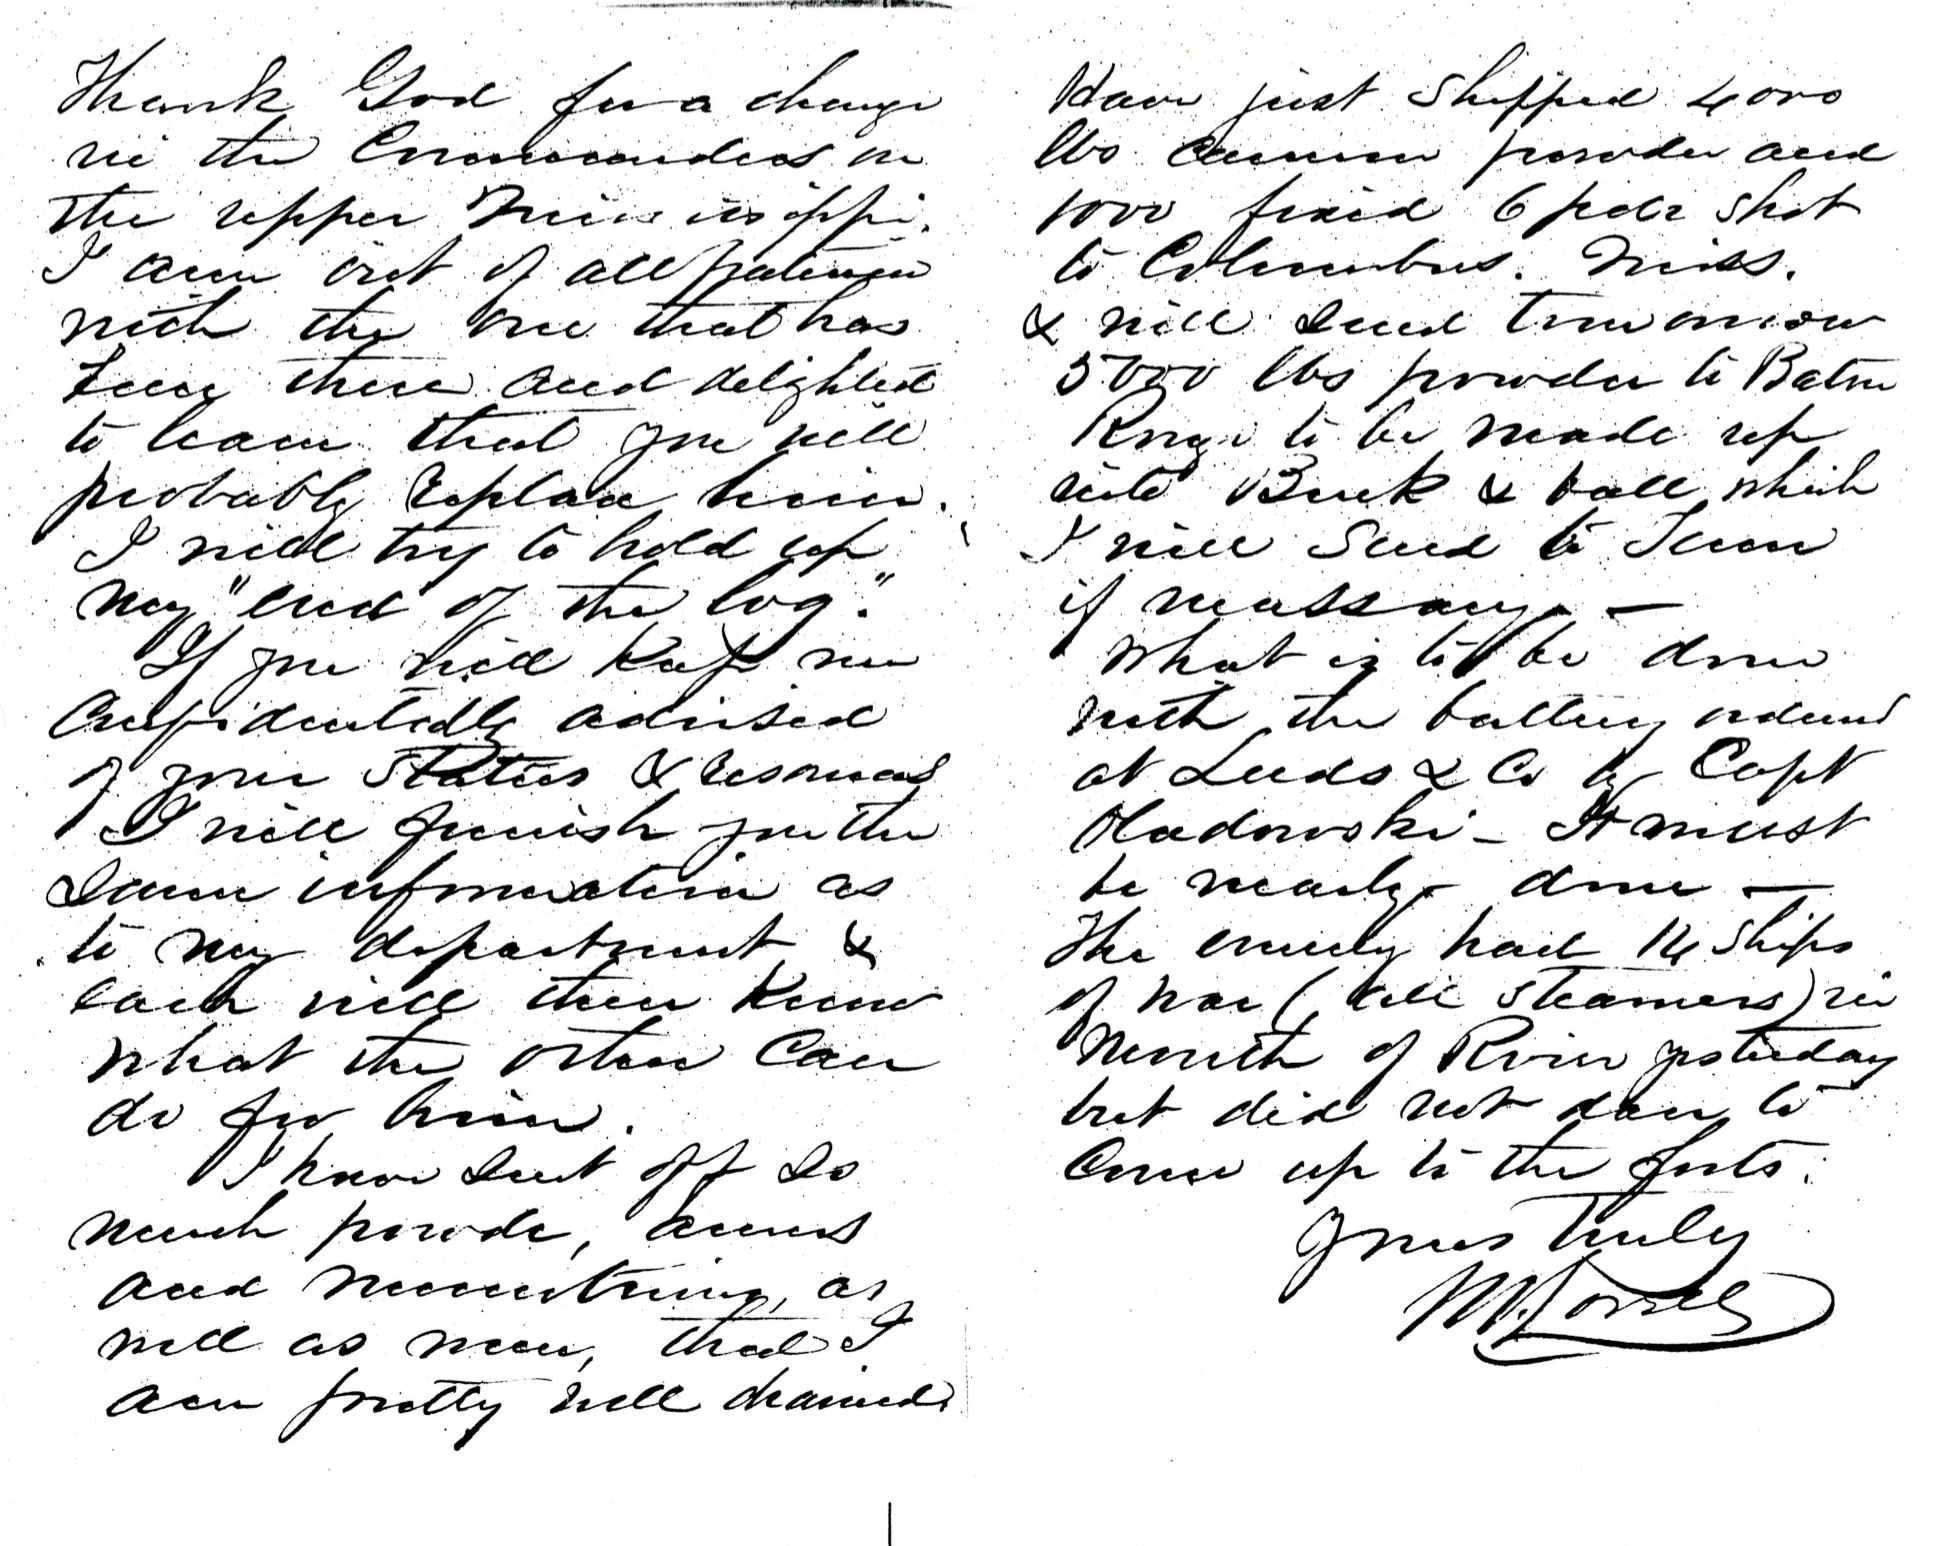 Thank God for a change
in the Commanders on
the upper Mississippi.
I am out of all patience
with the one that has
been there and delighted
to learn that you will
probably replace him.
I will try to hold up
my "end of the log."
If you will keep me
Confidentially advised
of your Status & resources
I will furnish you the
Same information as
to my department &
each will then Know
what the other Can
do for him.
I have Sent off So
much powder, arms
and munitions, as
well as men, that I
am pretty well drained.
Have just Shipped 4000
lbs Cannon powder and
1000 fixed 6 pdr Shot
to Columbus. Miss.
& will Send tomorrow
5000 lbs powder to Baton
Rouge to be made up
into Buck & ball, which
I will Send to Tenn
if necessary. —
What is to be done
with the battery ordered
at Leeds & Co by Capt
Oladowski – It must
be nearly done —
The enemy had 14 Ships
of war (all Steamers) in
Mouth of River yesterday
but did not dare to
Come up to the forts.
Yours Truly
M. Lovell